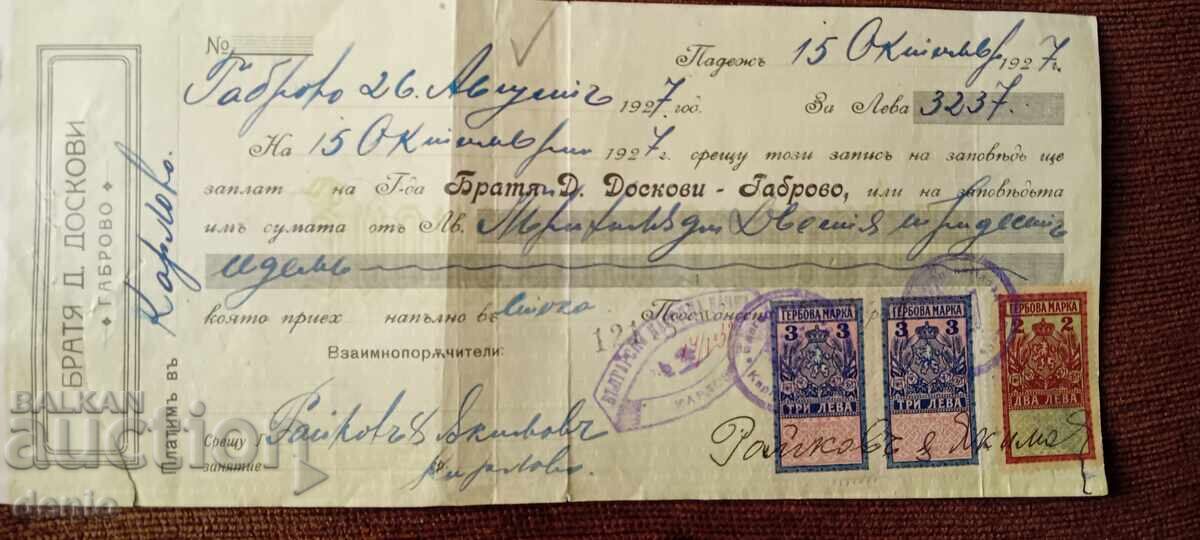 БРАТЯ Д. ДОСКОВИ
ГАБРОВО
Платимъ въ Карлово.
№
Падежъ 15 Октомврий 1927 г.
Габрово 26. Августъ 1927 год. За Лева 3237.
На 15 Октомврий 1927 г. срещу този записъ на заповѣдь ще
заплат на Г-да Братя Д. Доскови - Габрово, или на заповѣдьта
имъ сумата отъ Лв. Три хиляди Двестя тридесетъ
и седемь
която приех напълно въ стока
Взаимнопорѫчители:
БЪЛГАРСКА НАРОДНА БАНКА
ГЕРБОВА МАРКА
3 3
ТРИ ЛЕВА
ГЕРБОВА МАРКА
3 3
ТРИ ЛЕВА
ГЕРБОВА МАРКА
2 2
ДВА ЛЕВА
Срещу Г Райковъ & Якимовъ
занятие Карлово
Райковъ & Якимов
BALKAN
auction
denio